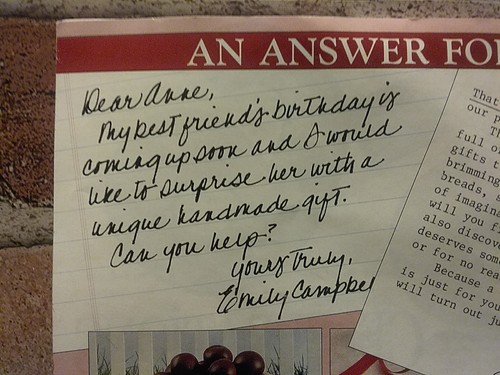 AN ANSWER FO
Dear Anne,
My best friend's birthday is
coming up soon and I would
like to surprise her with a
unique handmade gift.
Can you help?
Yours Truly,
Emily Campbel
That
our p
full o
gifts t
brimming
breads, s
of imagin
will you fi
also discov
deserves som
or for no rea
Because a
is just for you
will turn out ju